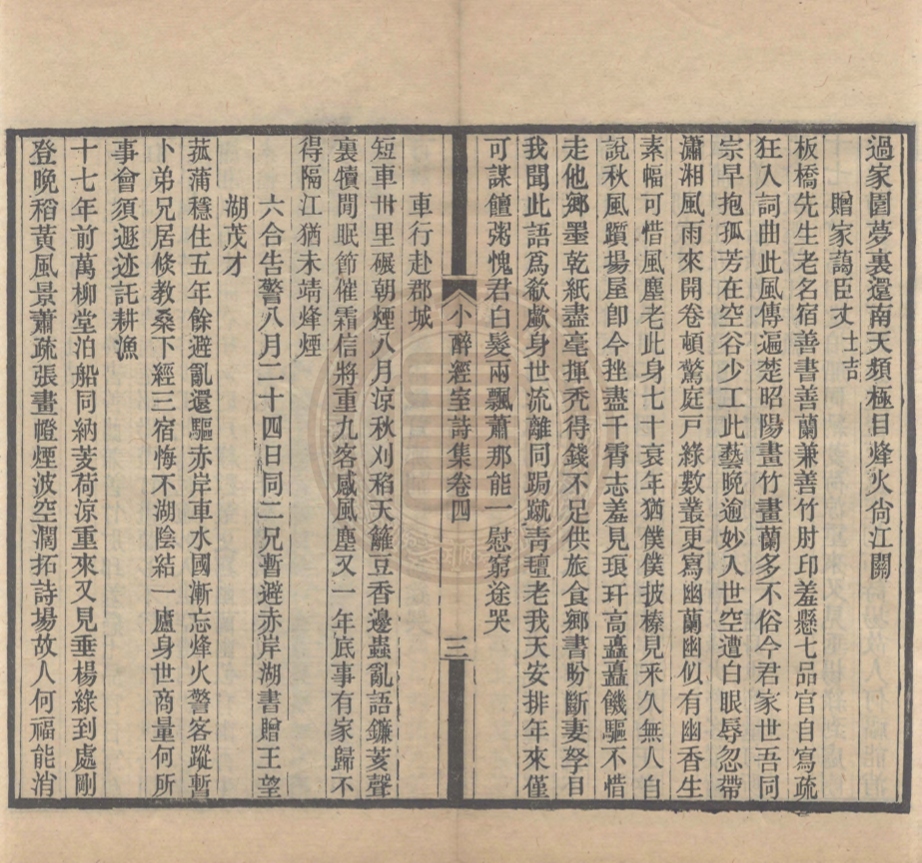 過家園夢裏還南天頻極目烽火尙江關
贈家藹臣丈士吉
板橋先生老名宿善書善蘭兼善竹肘印羞懸七品官自寫疏
狂入詞曲此風傳遍楚昭陽畫竹畫蘭多不俗今君家世吾同
宗早抱孤芳在空谷少工此藝晚逾妙人世空遭白眼辱忽帶
瀟湘風雨來開卷頓驚庭戸綠數叢更寫幽蘭幽似有幽香生
素幅可惜風塵老此身七十衰年猶僕僕披榛見采久無人自
說秋風躓場屋卽今挫盡千霄志羞見琅玕高矗矗饑驅不惜
走他鄉墨乾紙盡毫揮禿得錢不足供旅食鄉書盼斷妻孥目
我聞此語爲欷歔身世流離同跼蹴靑氊老我天安排年來僅
可謀饘粥愧君白髮兩飄蕭那能一慰窮途哭
小醉經室詩集卷四
三
車行赴郡城
短車卅里碾朝煙八月涼秋刈稻天籬豆香邊蟲亂語鐮荽聲
裏犢閒眠節催霜信將重九客感風塵又一年底事有家歸不
得隔江猶未靖烽煙
六合告警八月二十四日同二兄暫避赤岸湖書贈王望
湖茂才
菰蒲穩住五年餘避亂還驅赤岸車水國漸忘烽火警客蹤暫
卜弟兄居倐教桑下經三宿悔不湖陰結一廬身世商量何所
事會須遯迹託耕漁
十七年前萬柳堂泊船同納芰荷涼重來又見垂楊綠到處剛
登晚稻黃風景蕭疏張畫幛煙波空濶拓詩場故人何福能消